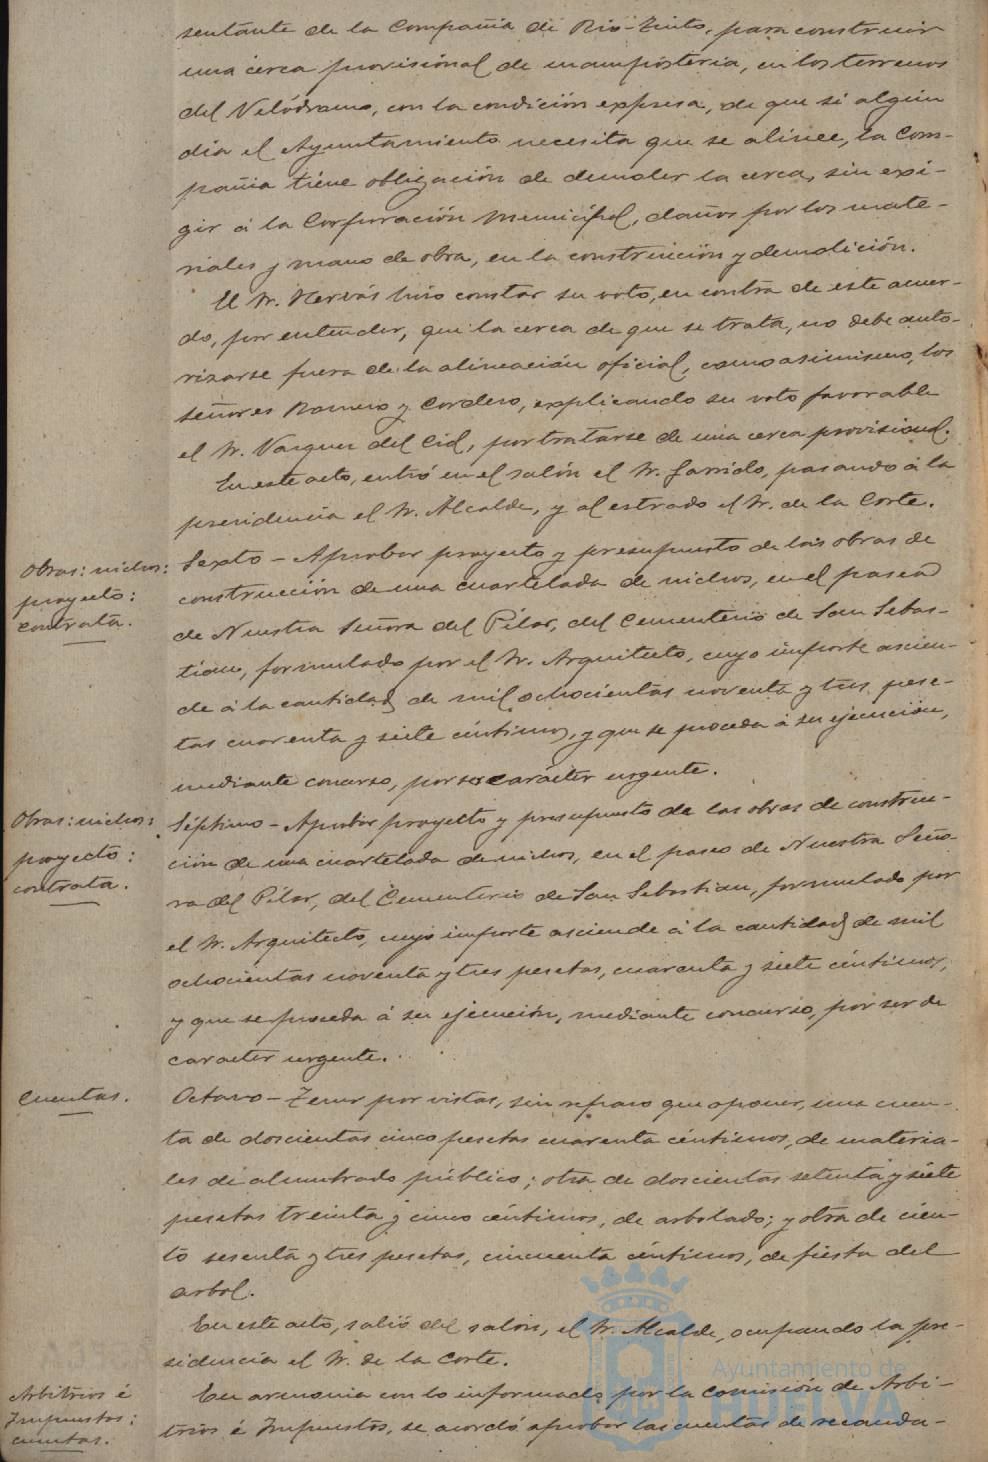 sentante de la Compañia de Rio-Tinto, para construir
una cerca provisional de mamposteria, en los terrenos
del Velódromo, con la condición expresa, de que si algún
dia el Ayuntamiento necesita que se alinee, la Com-
pañia tiene obligación de demoler la cerca, sin exi-
gir á la Corporación Municipal, daños por los mate-
riales y mano de obra, en la construcción y demolición.
El Sr. Hervás hizo constar su voto, en contra de este acuer-
do, por entender, que la cerca de que se trata, no debe auto-
rizarse fuera de la alineación oficial, como asimismo, los
señores Romero y Cordero, explicando su voto favorable
el Sr. Vazquez del Cid, por tratarse de una cerca provisional.
En este acto, entró en el salón el Sr. Garrido, pasando á la
presidencia el Sr. Alcalde, y al estrado el Sr. de la Corte.
Obras: nichos:
proyecto:
contrata.
Sexto - Aprobar proyecto y presupuesto de las obras de
construcción de una cuartelada de nichos, en el paseo
de Nuestra Señora del Pilar, del Cementerio de San Sebas-
tian, formulado por el Sr. Arquitecto, cuyo importe ascien-
de á la cantidad de mil ochocientas noventa y tres pese-
tas cuarenta y siete céntimos, y que se proceda á su ejecución,
mediante concurso, por ser carácter urgente.
Obras: nichos:
proyecto:
contrata.
Séptimo - Aprobar proyecto y presupuesto de las obras de construc-
ción de una cuartelada de nichos, en el paseo de Nuestra Seño-
ra del Pilar, del Cementerio de San Sebastian, formulado por
el Sr. Arquitecto, cuyo importe asciende á la cantidad de mil
ochocientas noventa y tres pesetas, cuarenta y siete céntimos,
y que se proceda á su ejecución, mediante concurso, por ser de
caracter urgente.
Cuentas.
Octavo - Tener por vistas, sin reparo que oponer, una cuen-
ta de doscientas cinco pesetas cuarenta céntimos, de materia-
les de alumbrado público; otra de doscientas setenta y siete
pesetas treinta y cinco céntimos, de arbolado; y otra de cien-
to sesenta y tres pesetas, cincuenta céntimos, de fiesta del
arbol.
En este acto, salió del salón, el Sr. Alcalde, ocupando la pre-
sidencia el Sr. de la Corte.
Arbitrios é
Impuestos:
cuentas.
En armonia con lo informado por la Comisión de Arbi-
trios é Impuestos, se acordó aprobar las cuentas de recauda-
Ayuntamiento de
HUELVA